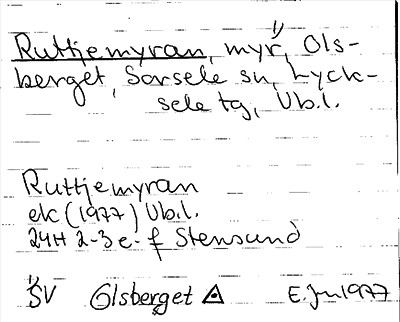 Ruttjemyran, myr,¹⁾ Ols-
berget, Sorsele sn, Lyck-
sele tg, Vb.l.
Ruttjemyran
ek (1977) Vb.l.
24H 2-3 e-f Stensund
¹⁾ SV Olsberget
E. Jn 1977